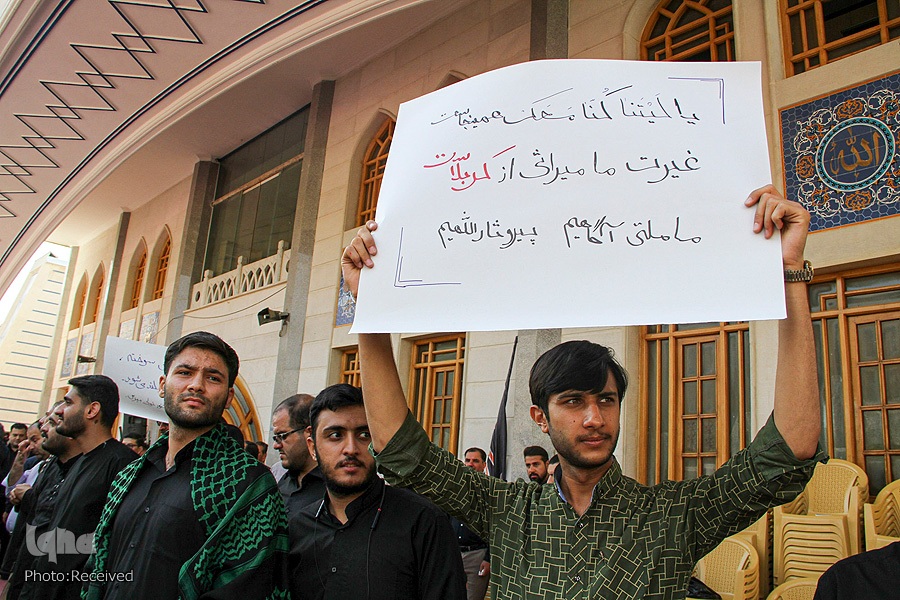 یا لَیْتَنا کُنّا مَعَک همینجاست
غیرت ما میراثی از کربلاست
ما ملتی آگاهیم پیرو ثاراللهیم
الله
iqna
Photo:Received